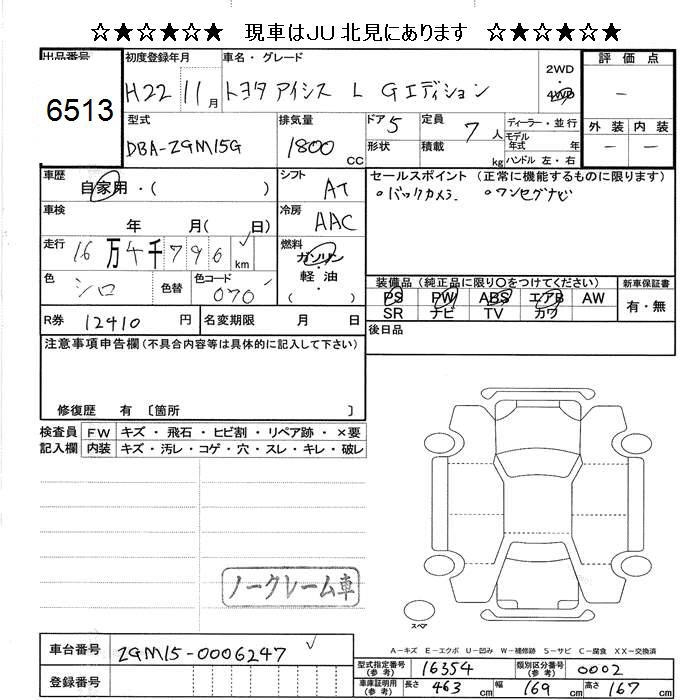 ☆★☆★☆★☆ 現車はJU北見にあります ☆★☆★☆★☆
出品番号 初度登録年月 車名・グレード 2WD 評価点
6513 H22 11月 トヨタ アイシス L Gエディション 4WD －
型式 排気量 ドア 5 定員 7 人 ディーラー・並行 外装 内装
DBA-ZGM15G 1800 CC 形状 積載 kg モデル年式 年 － －
ハンドル 左・右
車歴 自家用・( ) シフト AT セールスポイント (正常に機能するものに限ります)
車検 年 月( 日) 冷房 AAC ○バックカメラ ○ワンセグナビ
走行 16万4千796km 燃料 ガソリン・軽油 ( )
色 シロ 色替 色コード 070
装備品(純正品に限り○をつけてください) 新車保証書
PS PW ABS エアB AW 有・無
SR ナビ TV カワ
R券 12410円 名変期限 月 日 後日品
注意事項申告欄(不具合内容等は具体的に記入して下さい)
修復歴 有 〔箇所 〕
検査員 FW キズ・飛石・ヒビ割・リペア跡・×要
記入欄 内装 キズ・汚レ・コゲ・穴・スレ・キレ・破レ
ノークレーム車
スペア
A－キズ E－エクボ U－凹み W－補修跡 S－サビ C－腐食 XX－交換済
車台番号 ZGM15-0006247
型式指定番号(参考) 16354 類別区分番号(参考) 0002
登録番号
車庫証明用(参考) 長さ 463cm 幅 169cm 高さ 167cm